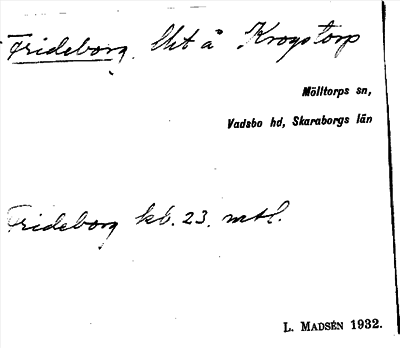 Frideborg. Lht å Krogstorp
Mölltorps sn,
Vadsbo hd, Skaraborgs län
Frideborg kb. 23. mtl.
L. MADSÉN 1932.